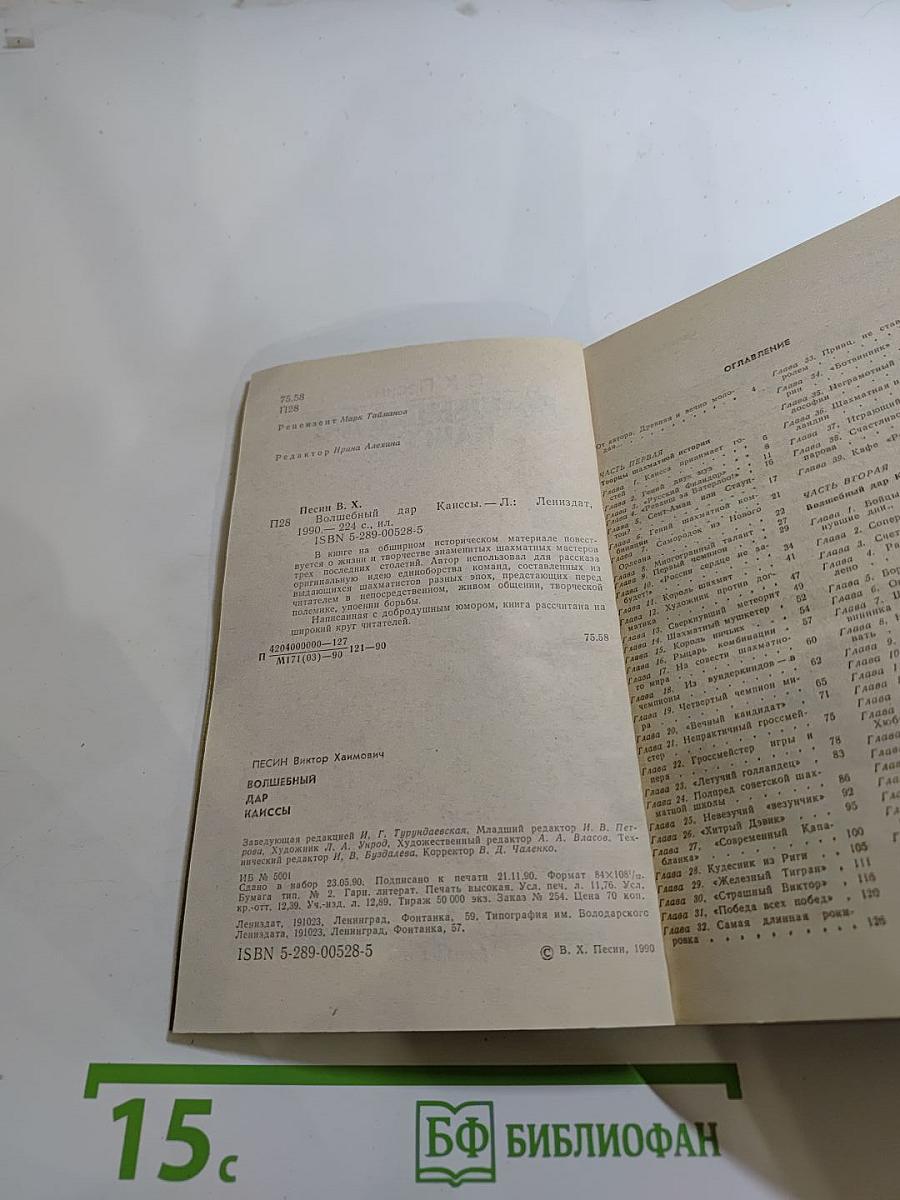 75.58
П28
Рецензент Марк Тайманов
Редактор Ирина Алехина
Песин В. Х.
П28 Волшебный дар Каиссы. — Л.: Лениздат,
1990. — 224 с., ил.
ISBN 5-289-00528-5
В книге на обширном историческом материале повест-
вуется о жизни и творчестве знаменитых шахматных мастеров
трех последних столетий. Автор использовал для рассказа
оригинальную идею единоборства команд, составленных из
выдающихся шахматистов разных эпох, предстающих перед
читателем в непосредственном, живом общении, творческой
полемике, упоении борьбы.
Написанная с добродушным юмором, книга рассчитана на
широкий круг читателей.
П 4204000000—127 121—90 75.58
М171(03)—90
ПЕСИН Виктор Хаимович
ВОЛШЕБНЫЙ
ДАР
КАИССЫ
Заведующая редакцией И. Г. Турундаевская, Младший редактор И. В. Пет-
рова, Художник Л. А. Унрод, Художественный редактор А. А. Власов, Тех-
нический редактор И. В. Буздалева, Корректор В. Д. Чаленко.
ИБ № 5001
Сдано в набор 23.05.90. Подписано к печати 21.11.90. Формат 84×108¹/₃₂.
Бумага тип. № 2. Гарн. литерат. Печать высокая. Усл. печ. л. 11,76. Усл.
кр.-отт. 12,39. Уч.-изд. л. 12,89. Тираж 50 000 экз. Заказ № 254. Цена 70 коп.
Лениздат, 191023, Ленинград, Фонтанка, 59. Типография им. Володарского
Лениздата, 191023, Ленинград, Фонтанка, 57.
ISBN 5-289-00528-5
© В. Х. Песин, 1990
ОГЛАВЛЕНИЕ
От автора. Древняя и вечно моло-
дая . . . 4
ЧАСТЬ ПЕРВАЯ
Творцы шахматной истории
Глава 1. Каисса принимает го-
стей 6
Глава 2. Гений двух муз 8
Глава 3. «Русский Филидор» 11
Глава 4. «Реванш за Ватерлоо!» 16
Глава 5. Сент-Аман или Стаун-
тон? 17
Глава 6. Гений шахматной ком-
бинации 21
Глава 7. Самородок из Нового
Орлеана 23
Глава 8. Многогранный талант 27
Глава 9. Первый чемпион 29
Глава 10. «России сердце не за-
будет!» 34
Глава 11. Король шахмат 41
Глава 12. Художник против дог-
матика 47
Глава 13. Сверкнувший метеорит 49
Глава 14. Шахматный мушкетер 52
Глава 15. Король ничьих 54
Глава 16. Рыцарь комбинации 57
Глава 17. На совести шахматно-
го мира 60
Глава 18. Из вундеркиндов — в
чемпионы 62
Глава 19. Четвертый чемпион ми-
ра 65
Глава 20. «Вечный кандидат» 71
Глава 21. Непрактичный гроссмей-
стер 75
Глава 22. Гроссмейстер игры и
пера 78
Глава 23. «Летучий голландец» 83
Глава 24. Полпред советской шах-
матной школы 86
Глава 25. Невезучий «везунчик» 92
Глава 26. «Хитрый Дэвик» 95
Глава 27. «Современный Капа-
бланка» 100
Глава 28. Кудесник из Риги 105
Глава 29. «Железный Тигран» 111
Глава 30. «Страшный Виктор» 116
Глава 31. «Победа всех побед» 120
Глава 32. Самая длинная роки-
ровка 126
Глава 33. Принц, не став
ролем
Глава 34. «Ботвинник»
рии
Глава 35. Неграмотный
лософии
Глава 36. Шахматная
ландии
Глава 37. Играющий
Глава 38. Счастли
парова
Глава 39. Кафе «Р
ЧАСТЬ ВТОРАЯ
Волшебный дар К
Глава 1. Бойцы
нувшие дни..
Глава 2. Сопер
Глава 3. Счет
дено
Глава 4. Ро
Глава 5. Бор
Глава 6. Ст
Глава 7. Ш
винника
Глава 8.
вать
Глава 9.
Глава 10
Глава 1
Глава
Глава
Глава
Хюб
Глава
Глава
Глава
15 с
БФ БИБЛИОФАН